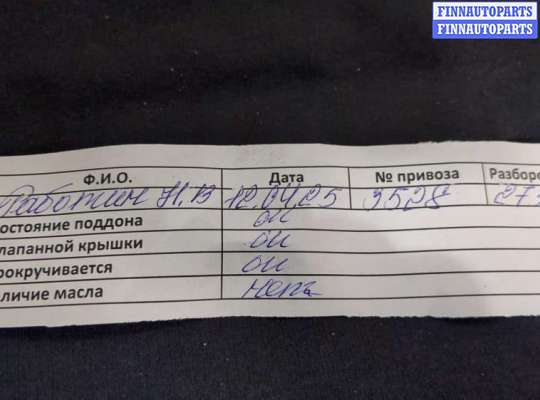 FINNAUTOPARTS
FINNAUTOPARTS
Ф.И.О. Дата № привоза Разборе
Н.В 12.04.25 3528 27
остояние поддона ок
лапанной крышки ок
рокручивается ок
личие масла